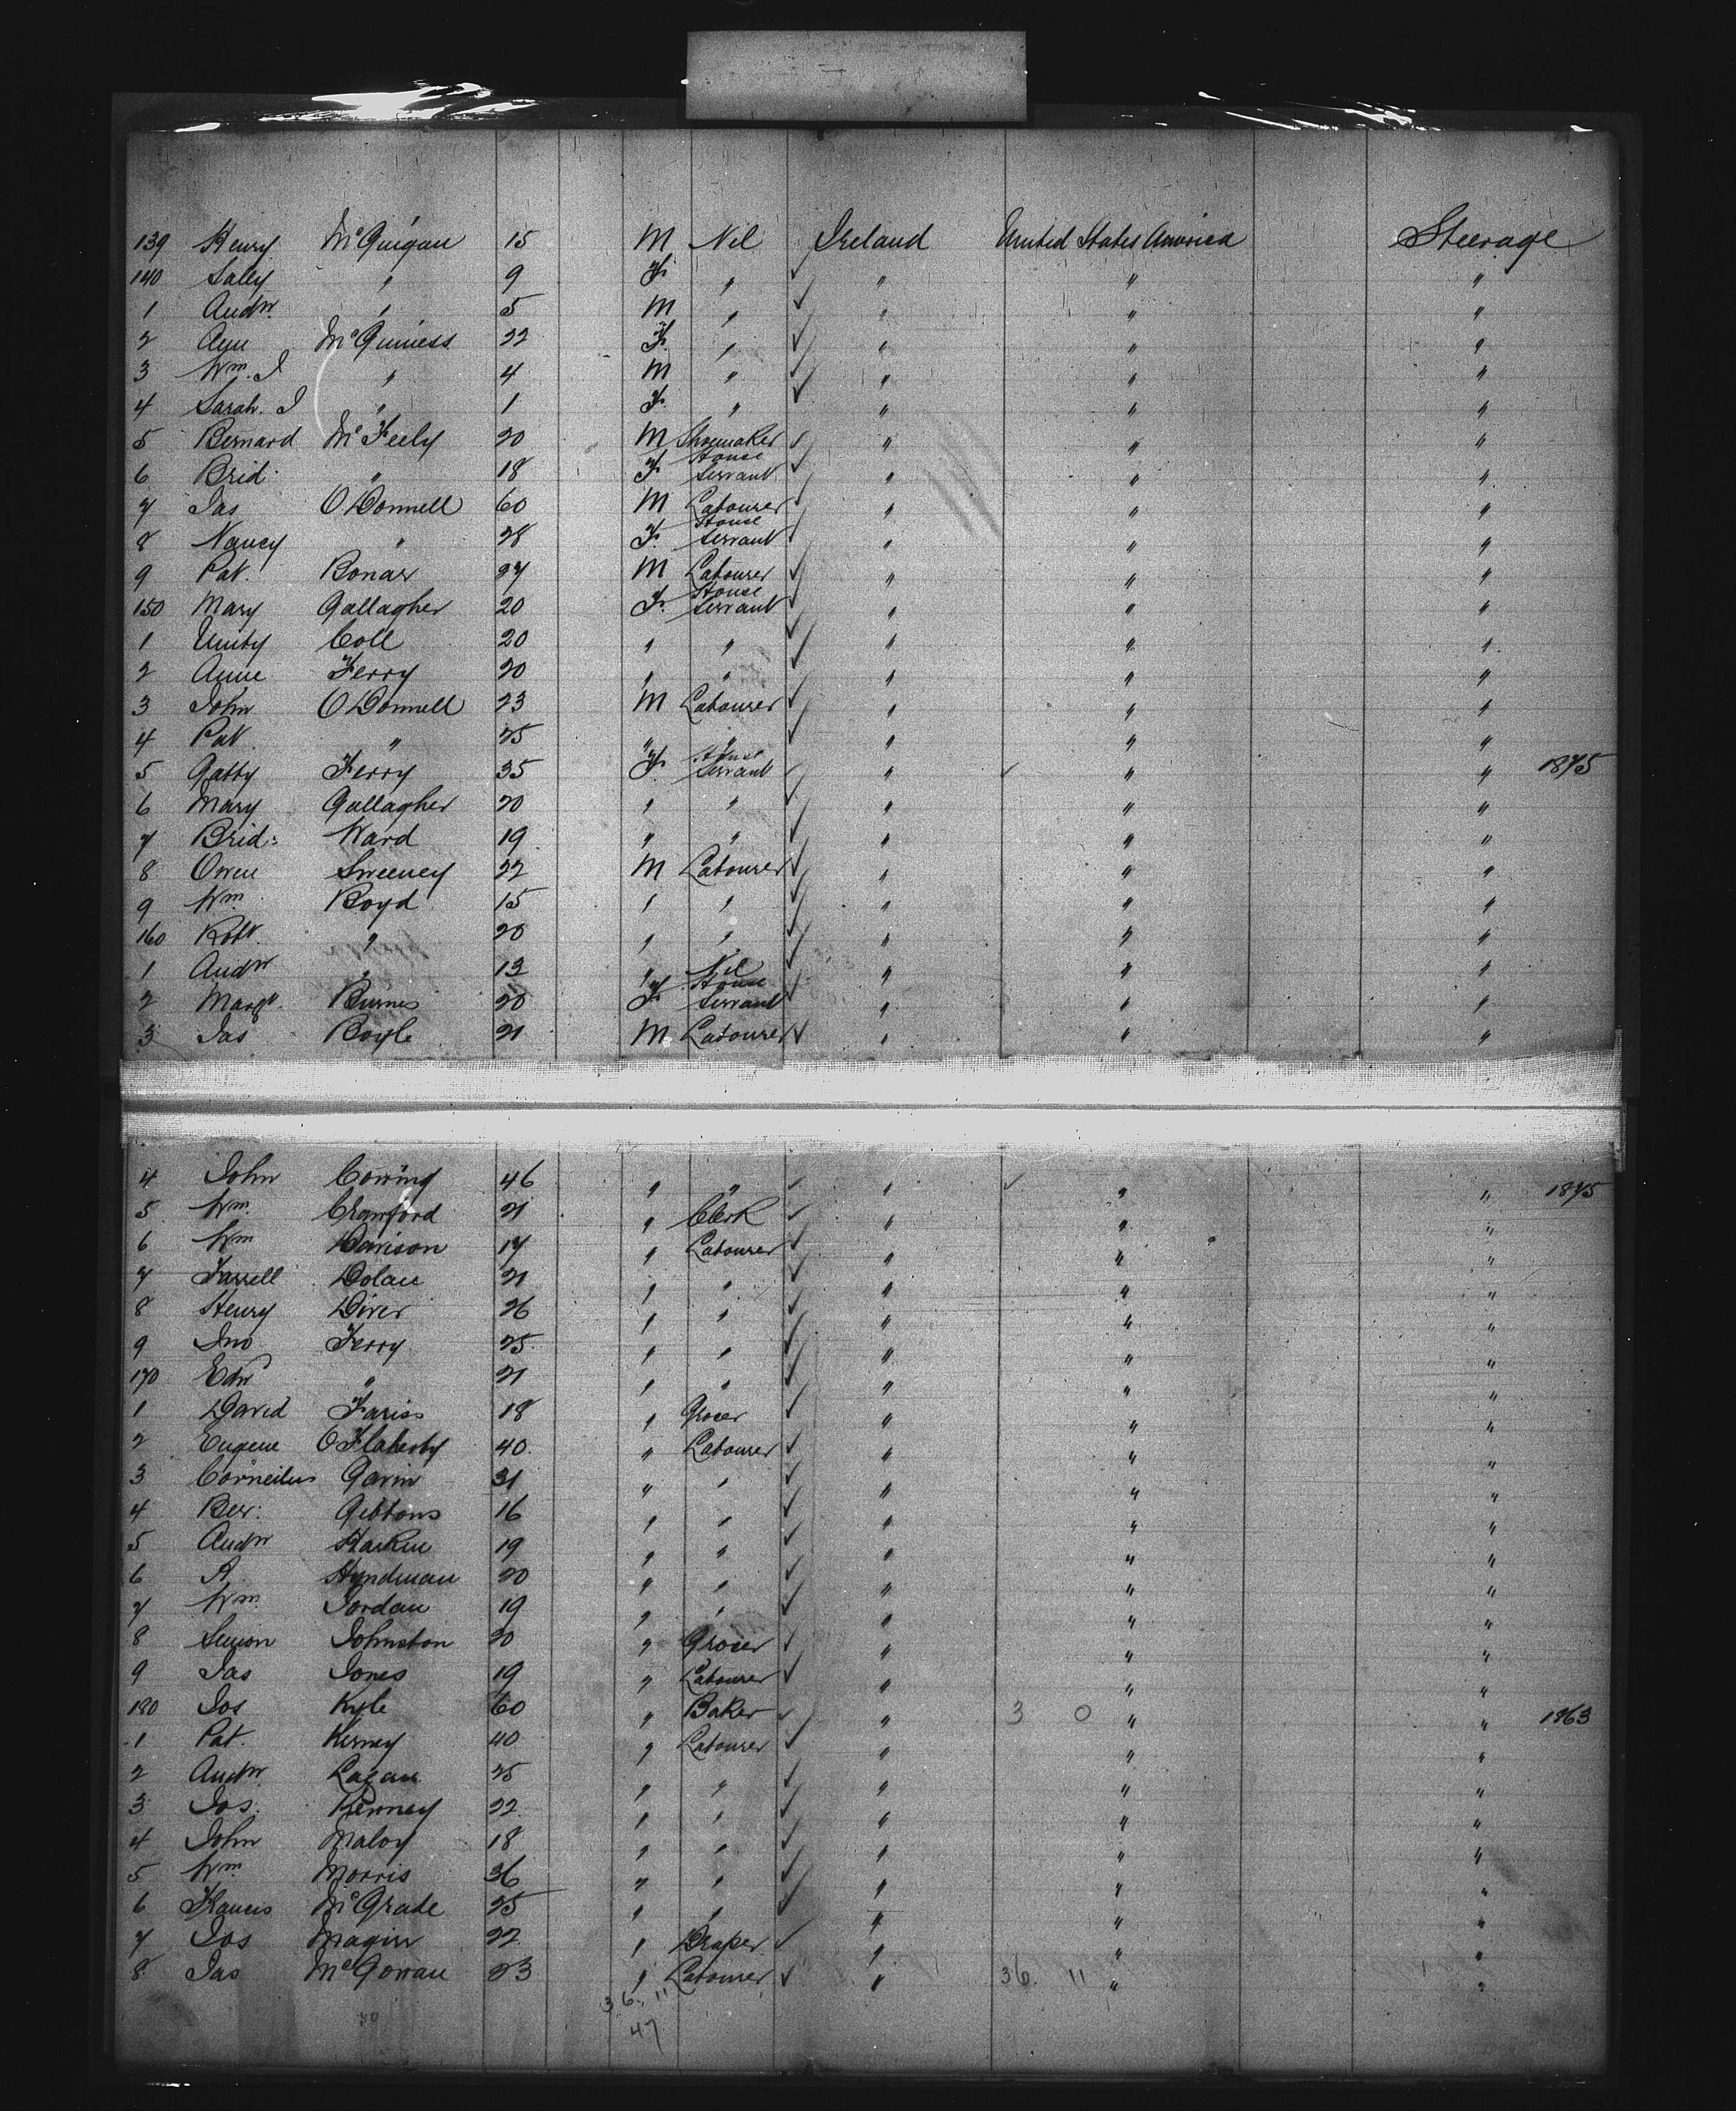 139 Henry McGuigan 15 M Nil Ireland United States America Steerage
140 Sally " 9 F " " " "
1 Andw. " 5 M " " " "
2 Ann McGuiness 22 F. " " " "
3 Wm. J " 4 M " " " "
4 Sarah. J " 1 F. " " " "
5 Bernard McFeely 20 M Shoemaker " " "
6 Brid. " 18 F House Servant " " "
7 Jas O'Donnell 60 M Labourer " " "
8 Nancy " 28 F. House Servant " " "
9 Pat. Bonar 27 M Labourer " " "
150 Mary Gallagher 20 F. House Servant " " "
1 Unity Coll 20 " " " " "
2 Anne Ferry 20 " " " " "
3 John O'Donnell 23 M Labourer " " "
4 Pat " 25 " " " " "
5 Gatty Ferry 35 F House Servant " " " 1875
6 Mary Gallagher 20 " " " " "
7 Brid: Ward 19 " " " " "
8 Owen Sweeney 22 M Labourer " " "
9 Wm Boyd 15 " " " " "
160 Robt. " 20 " " " " "
1 Andw " 13 " Nil " " "
2 Margt. Burnes 20 F House Servant " " "
3 Jas Boyle 21 M Labourer " " "
4 John Cowing 46 " " " " " 1875
5 Wm. Crawford 21 " Clerk " " "
6 Wm Davison 17 " Labourer " " "
7 Farrell Dolan 21 " " " " "
8 Henry Diver 26 " " " " "
9 Jno Ferry 25 " " " " "
170 Edw " 21 " " " " "
1 David Fariss 18 " Grocer " " "
2 Eugene O'Flaherty 40 " Labourer " " "
3 Corneilus Gavin 31 " " " " "
4 Ber: Gibbons 16 " " " " "
5 Andw Harkin 19 " " " " "
6 R. Hyndman 20 " " " " "
7 Wm. Jordan 19 " " " " "
8 Simon Johnston 20 " Grocer " " "
9 Jas Jones 19 " Labourer " " "
180 Jos Kyle 60 " Baker " 3 0 " " 1863
1 Pat. Kerney 40 " Labourer " " "
2 Andw. Lagan 25 " " " " "
3 Jos. 22 " " " " "
4 John Maloy 18 " " " " "
5 Wm. Morris 36 " " " " "
6 Francis McGrade 25 " " " " "
7 Jos Maginn 22 " Draper " " "
8 Jas McGowan 23 " Labourer " 36. 11 " "
36. 11
47